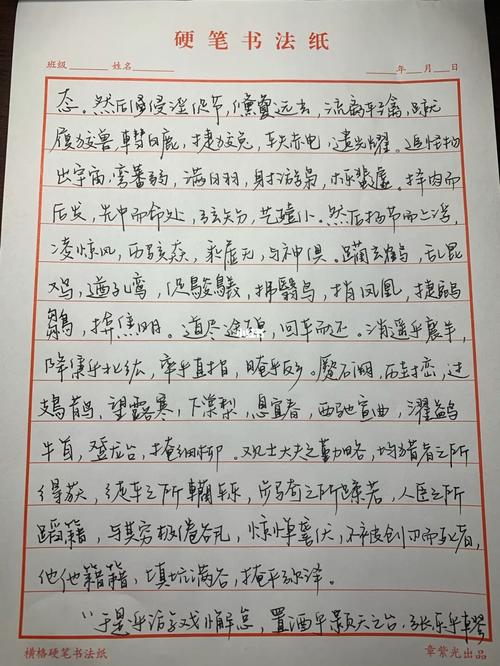 硬笔书法纸
班级 姓名 年 月 日
态。然后侵淫促节，儵敻远去，流离轻禽，蹴履
狡兽，轊白鹿，捷狡兔，轶赤电，遗光耀。追怪物
出宇宙，弯蕃弱，满白羽，射游枭，栎蜚虡。择肉而
后发，先中而命处，弦矢分，艺殪仆。然后扬节而上浮，
凌惊风，历骇焱，乘虚无，与神俱。躏玄鹤，乱昆
鸡，遒孔鸾，促鵔鸃，拂翳鸟，捎凤凰，捷鸳
鶵，掩焦明。道尽途殚，回车而还。消遥乎襄羊，
降集乎北纮，率乎直指，晻乎反乡。蹷石阙，历封峦，过
鳷鹊，望露寒，下棠梨，息宜春，西驰宣曲，濯鹢
牛首，登龙台，掩细柳。观士大夫之勤略，均猎者之所
得获，徒车之所轥轹，步骑之所蹂若，人臣之所
蹈籍，与其穷极倦谷卂，惊惮詟伏，不被创刃而死者，
他他籍籍，填坑满谷，掩平弥泽。
“于是乎游戏懈怠，置酒乎颢天之台，张乐乎轇
横格硬笔书法纸 章紫光出品